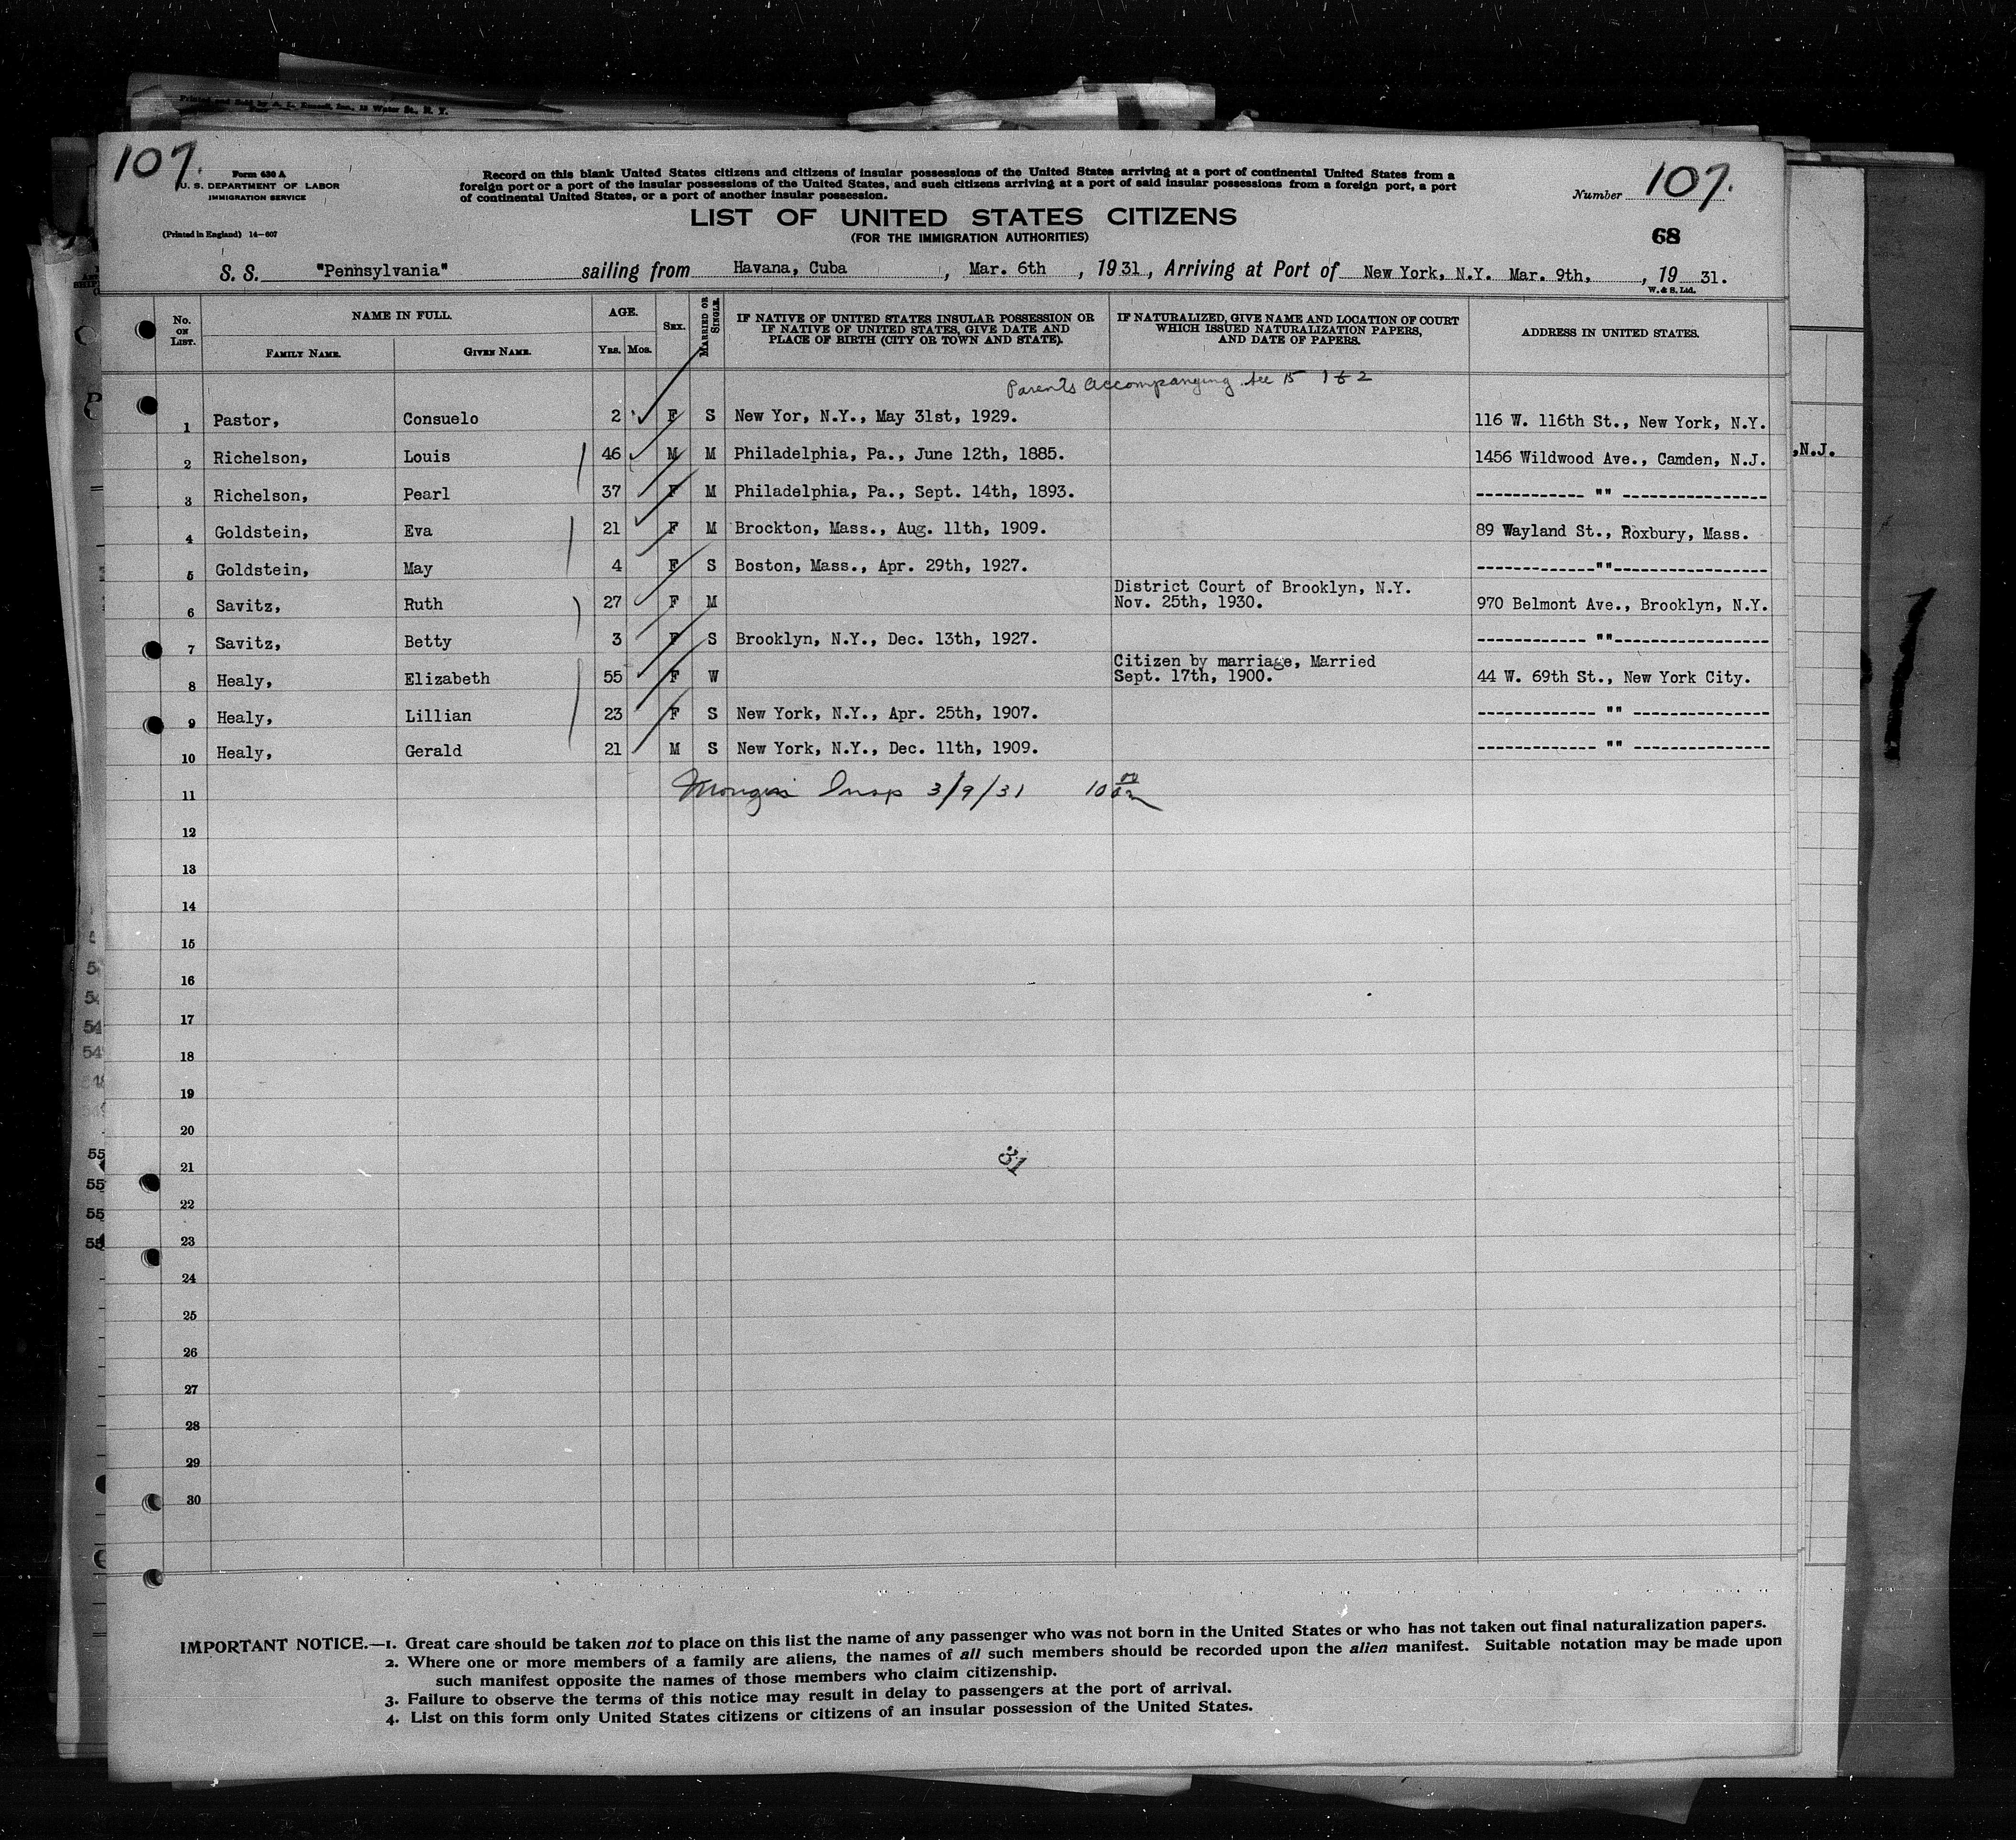 Printed and Sold by 15 Water St., N. Y.
107.
Form 630 A
U. S. DEPARTMENT OF LABOR
IMMIGRATION SERVICE
(Printed in England) 14—607
Record on this blank United States citizens and citizens of insular possessions of the United States arriving at a port of continental United States from a
foreign port or a port of the insular possessions of the United States, and such citizens arriving at a port of said insular possessions from a foreign port, a port
of continental United States, or a port of another insular possession.
LIST OF UNITED STATES CITIZENS
(FOR THE IMMIGRATION AUTHORITIES)
Number 107.
68
S. S. "Pennsylvania" sailing from Havana, Cuba, Mar. 6th, 1931, Arriving at Port of New York, N.Y. Mar. 9th, , 19 31.
W. & S. Ltd.
No. ON LIST.
NAME IN FULL.
FAMILY NAME. GIVEN NAME.
AGE.
YRS. MOS.
SEX.
MARRIED OR SINGLE.
IF NATIVE OF UNITED STATES INSULAR POSSESSION OR
IF NATIVE OF UNITED STATES, GIVE DATE AND
PLACE OF BIRTH (CITY OR TOWN AND STATE).
IF NATURALIZED, GIVE NAME AND LOCATION OF COURT
WHICH ISSUED NATURALIZATION PAPERS,
AND DATE OF PAPERS.
ADDRESS IN UNITED STATES.
Parents Accompanying. See 15 1 & 2
1 Pastor, Consuelo 2 F S New Yor, N.Y., May 31st, 1929. 116 W. 116th St., New York, N.Y.
2 Richelson, Louis 46 M M Philadelphia, Pa., June 12th, 1885. 1456 Wildwood Ave., Camden, N.J.
3 Richelson, Pearl 37 F M Philadelphia, Pa., Sept. 14th, 1893. ------------ "" ----------------
4 Goldstein, Eva 21 F M Brockton, Mass., Aug. 11th, 1909. 89 Wayland St., Roxbury, Mass.
5 Goldstein, May 4 F S Boston, Mass., Apr. 29th, 1927. -------------""-----------------
6 Savitz, Ruth 27 F M District Court of Brooklyn, N.Y. 970 Belmont Ave., Brooklyn, N.Y.
Nov. 25th, 1930.
7 Savitz, Betty 3 F S Brooklyn, N.Y., Dec. 13th, 1927. ------------ ""-----------------
8 Healy, Elizabeth 55 F W Citizen by marriage, Married 44 W. 69th St., New York City.
Sept. 17th, 1900.
9 Healy, Lillian 23 F S New York, N.Y., Apr. 25th, 1907. ------------- "" ---------------
10 Healy, Gerald 21 M S New York, N.Y., Dec. 11th, 1909. ------------- "" ---------------
11 Insp 3/9/31 10
12
13
14
15
16
17
18
19
20
21
22
23
24
25
26
27
28
29
30
31
,N.J.
54
54
55
55
55
55
IMPORTANT NOTICE.—1. Great care should be taken not to place on this list the name of any passenger who was not born in the United States or who has not taken out final naturalization papers.
2. Where one or more members of a family are aliens, the names of all such members should be recorded upon the alien manifest. Suitable notation may be made upon
such manifest opposite the names of those members who claim citizenship.
3. Failure to observe the terms of this notice may result in delay to passengers at the port of arrival.
4. List on this form only United States citizens or citizens of an insular possession of the United States.